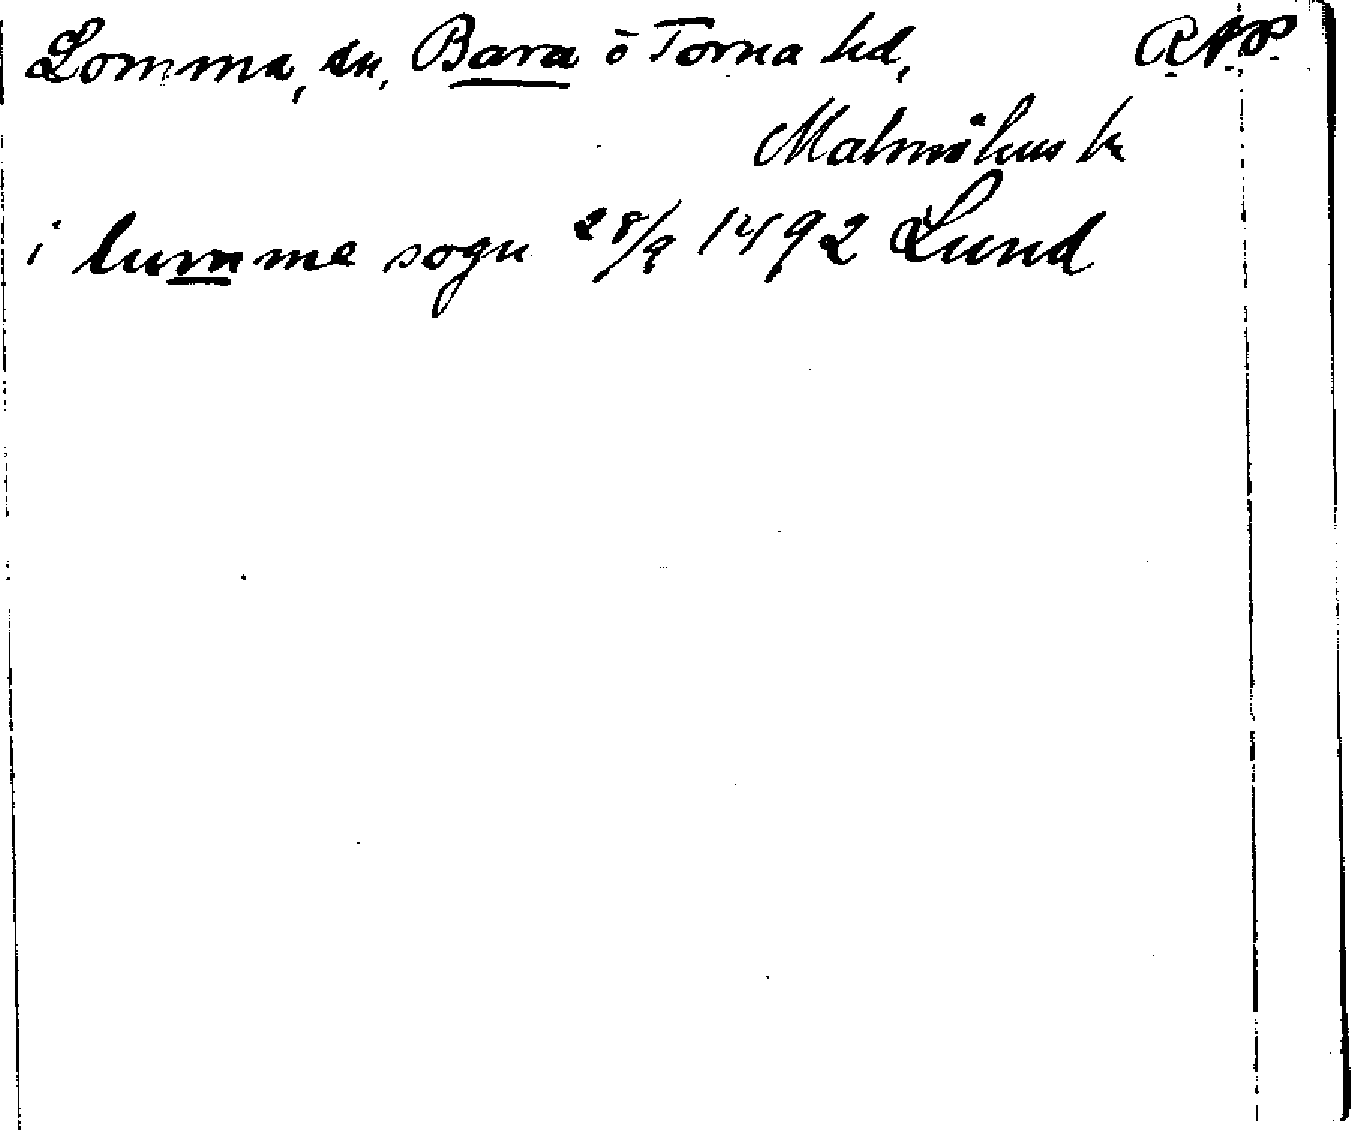 Lomma, sn, Bara o Torna hd, RAP
Malmöhus l.
i lumme sogn 28/9 1492 Lund